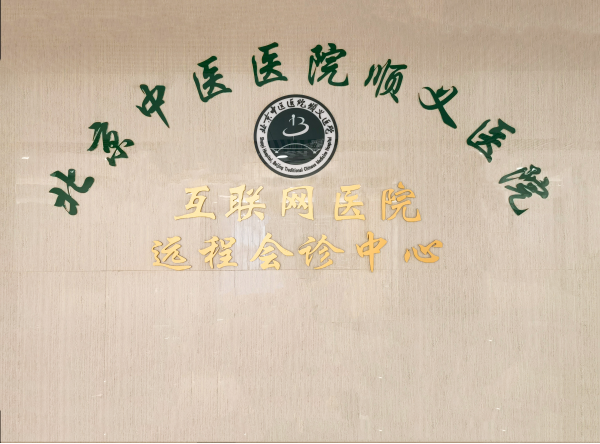 北京中医医院顺义医院
北京中医医院顺义医院
Shunyi Hospital, Beijing Traditional Chinese Medicine Hospital
互联网医院
远程会诊中心